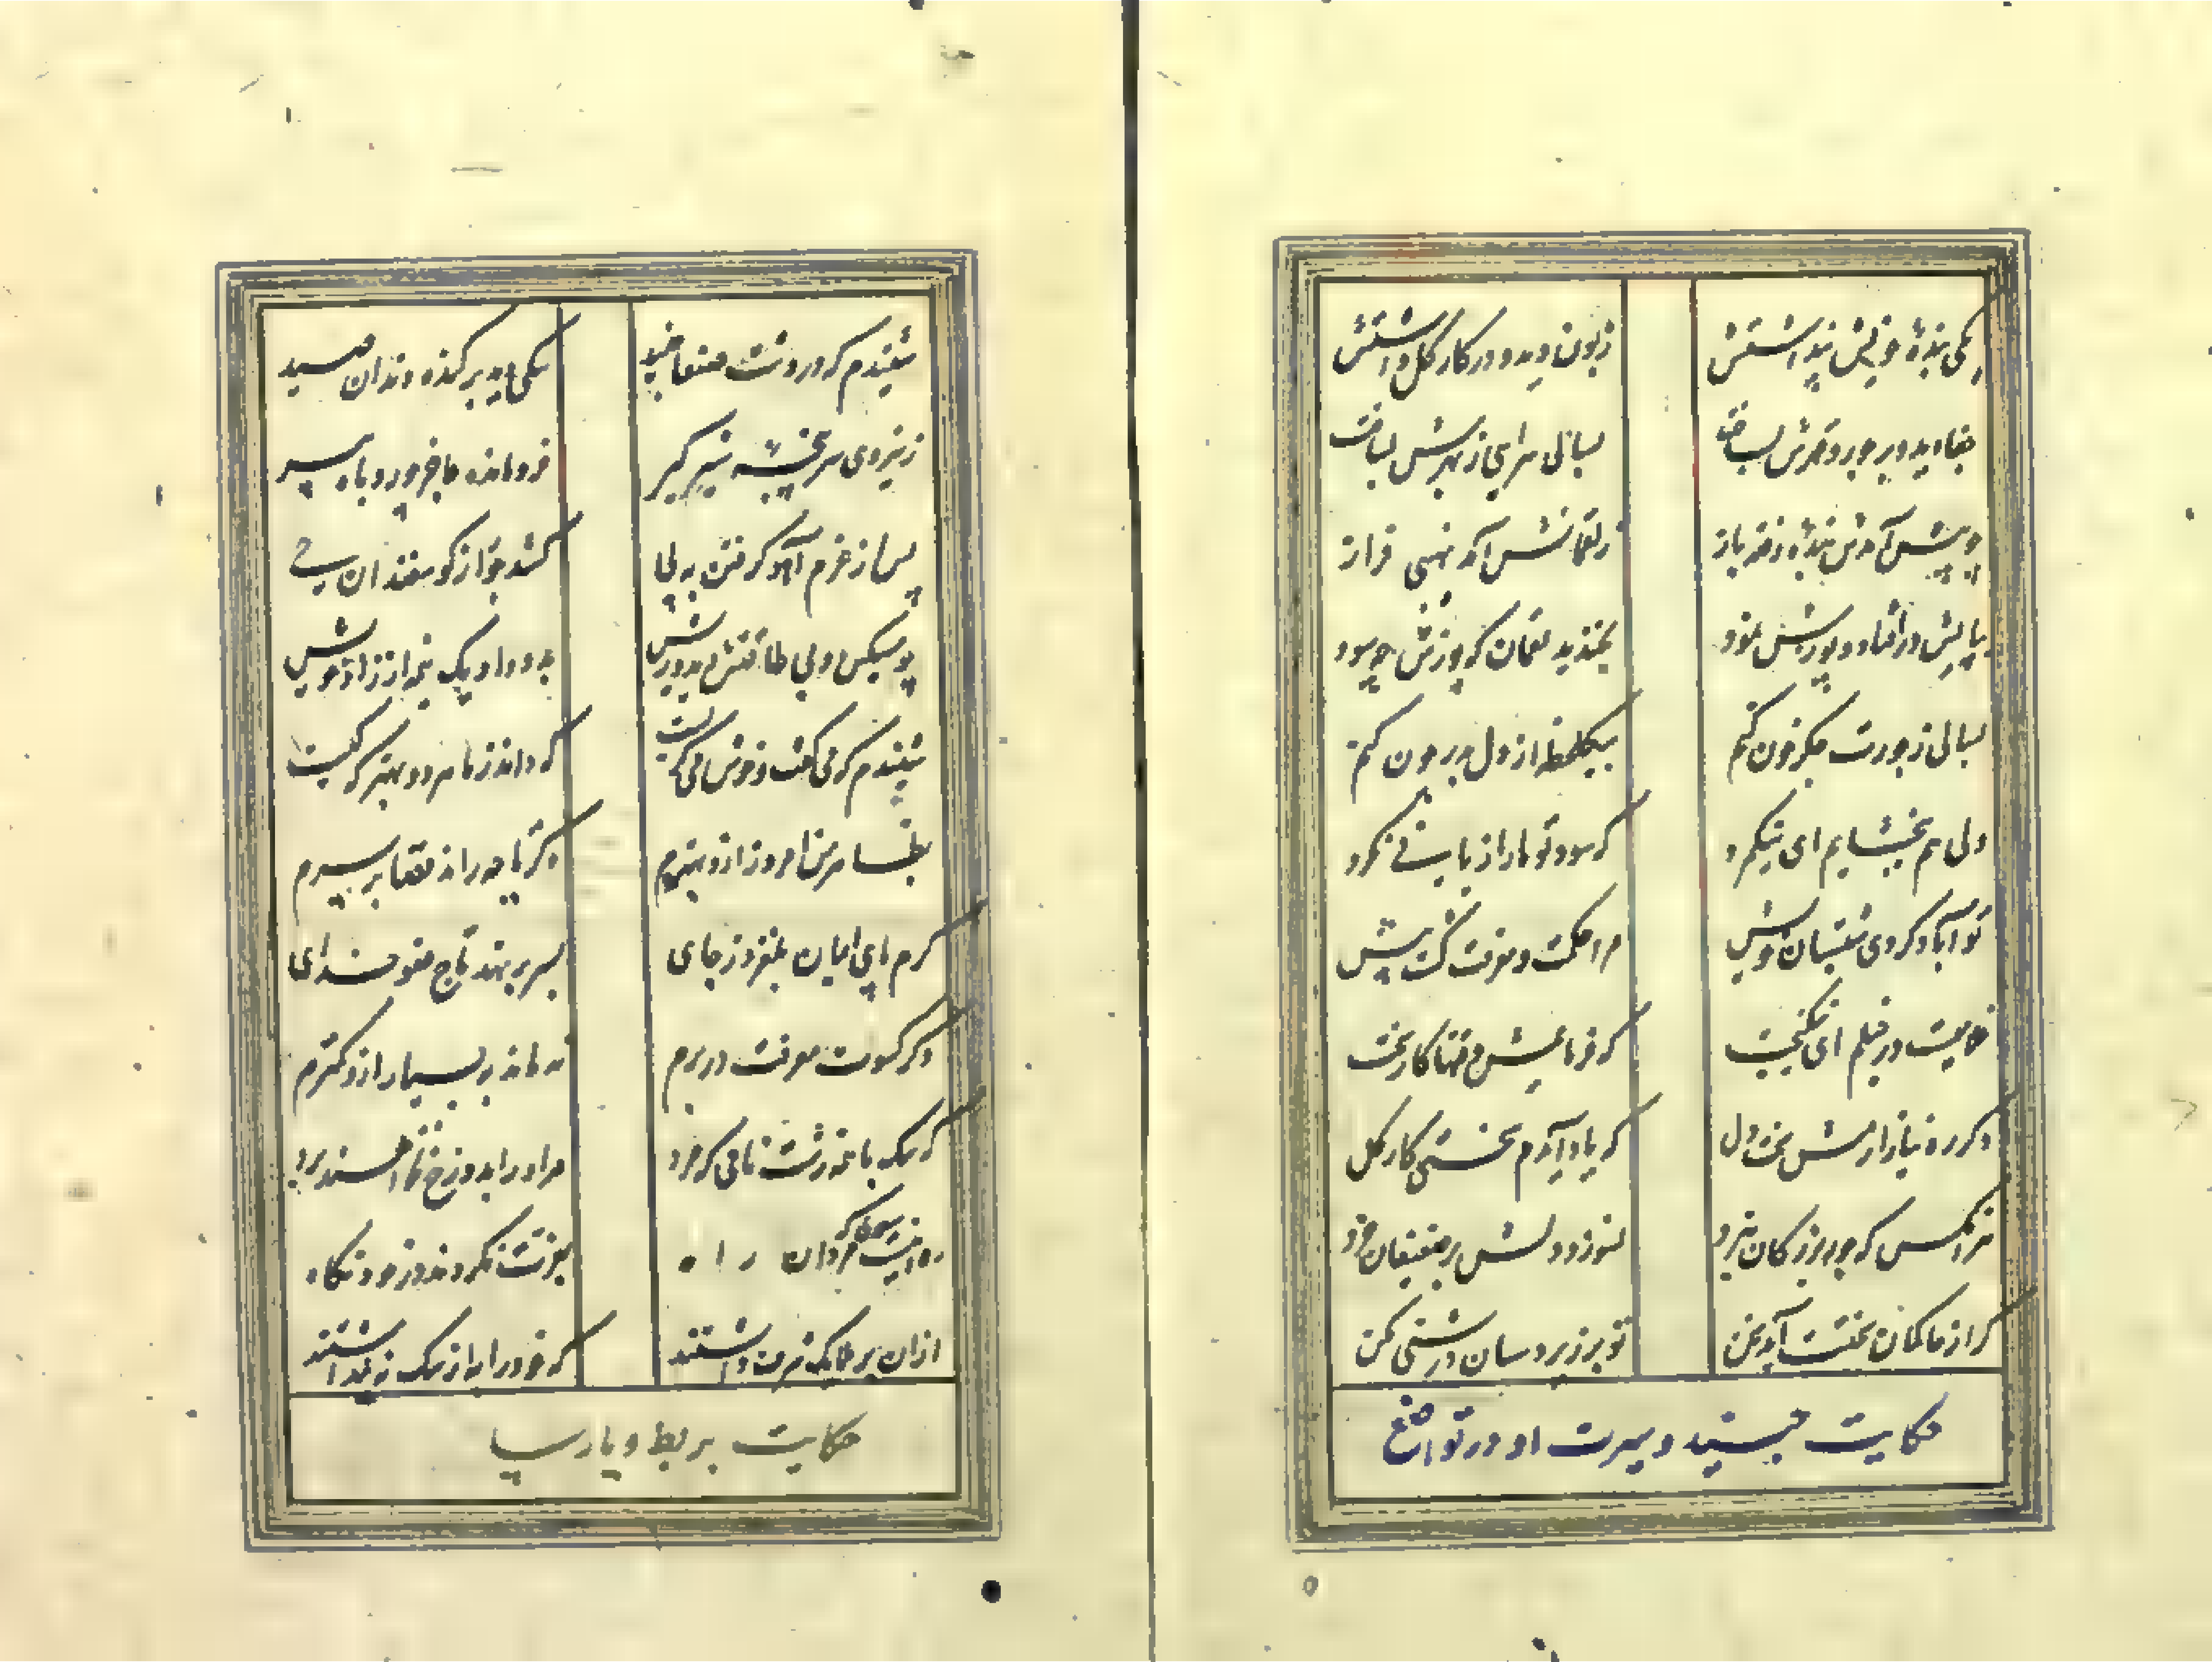 یکی بندهٔ خویش پنداشتش
زبون دید و در کار گل داشتش
جفا دید و بر جور و قهرش بساخت
بسالی سرای ز بهرش بساخت
چو پیش آمدش بندهٔ رفته باز
ز لقمانش آمد نهیبی فراز
بپایش در افتاد و پوزش نمود
بخندید لقمان که پوزش چه سود
بسالی ز جورت جگر خون کنم
بیکلحظه از دل بدر چون کنم
ولی هم ببخشایم ای نیکمرد
که سود تو ما را زیانی نکرد
تو آباد کردی شبستان خویش
مرا حکمت و معرفت گشت بیش
غلامیست در خیلم ای نیکبخت
که فرمایمش وقتها کار سخت
دگر ره نیازارمش سخت دل
که یاد آیدم سختی کار گل
هر آنکس که جور بزرگان نبرد
نسوزد دلش بر ضعیفان خرد
گر از حاکمان سختت آید سخن
تو بر زیردستان درشتی مکن
حکایت جنید و سیرت او در تواضع
شنیدم که در دشت صنعا جنید
سگی دید برکنده دندان صید
ز نیروی سرپنجهٔ شیر گیر
فرو مانده عاجز چو روباه پیر
پس از غرم آهو گرفتن به پی
لگد خوردی از گوسفندان حی
چو مسکین و بی طاقتش دید و ریش
بدو داد یک نیمه از زاد خویش
شنیدم که می گفت و خوش می گریست
که داند که از ما دو بهتر که کیست
بظاهر من امروز ازو بهترم
دگر تا چه راند قضا بر سرم
گرم پای ایمان نلغزد ز جای
بسر بر نهم تاج عفو خدای
وگر کسوت معرفت در برم
نماند به بسیار ازو کمترم
که سگ با همه زشت نامی که مرد
مر او را بدوزخ نخواهند برد
ره اینست سعدی که مردان راه
بعزت نکردند در خود نگاه
ازان بر ملایک شرف داشتند
که خود را به از سگ نپنداشتند
حکایت بربط و پارسا